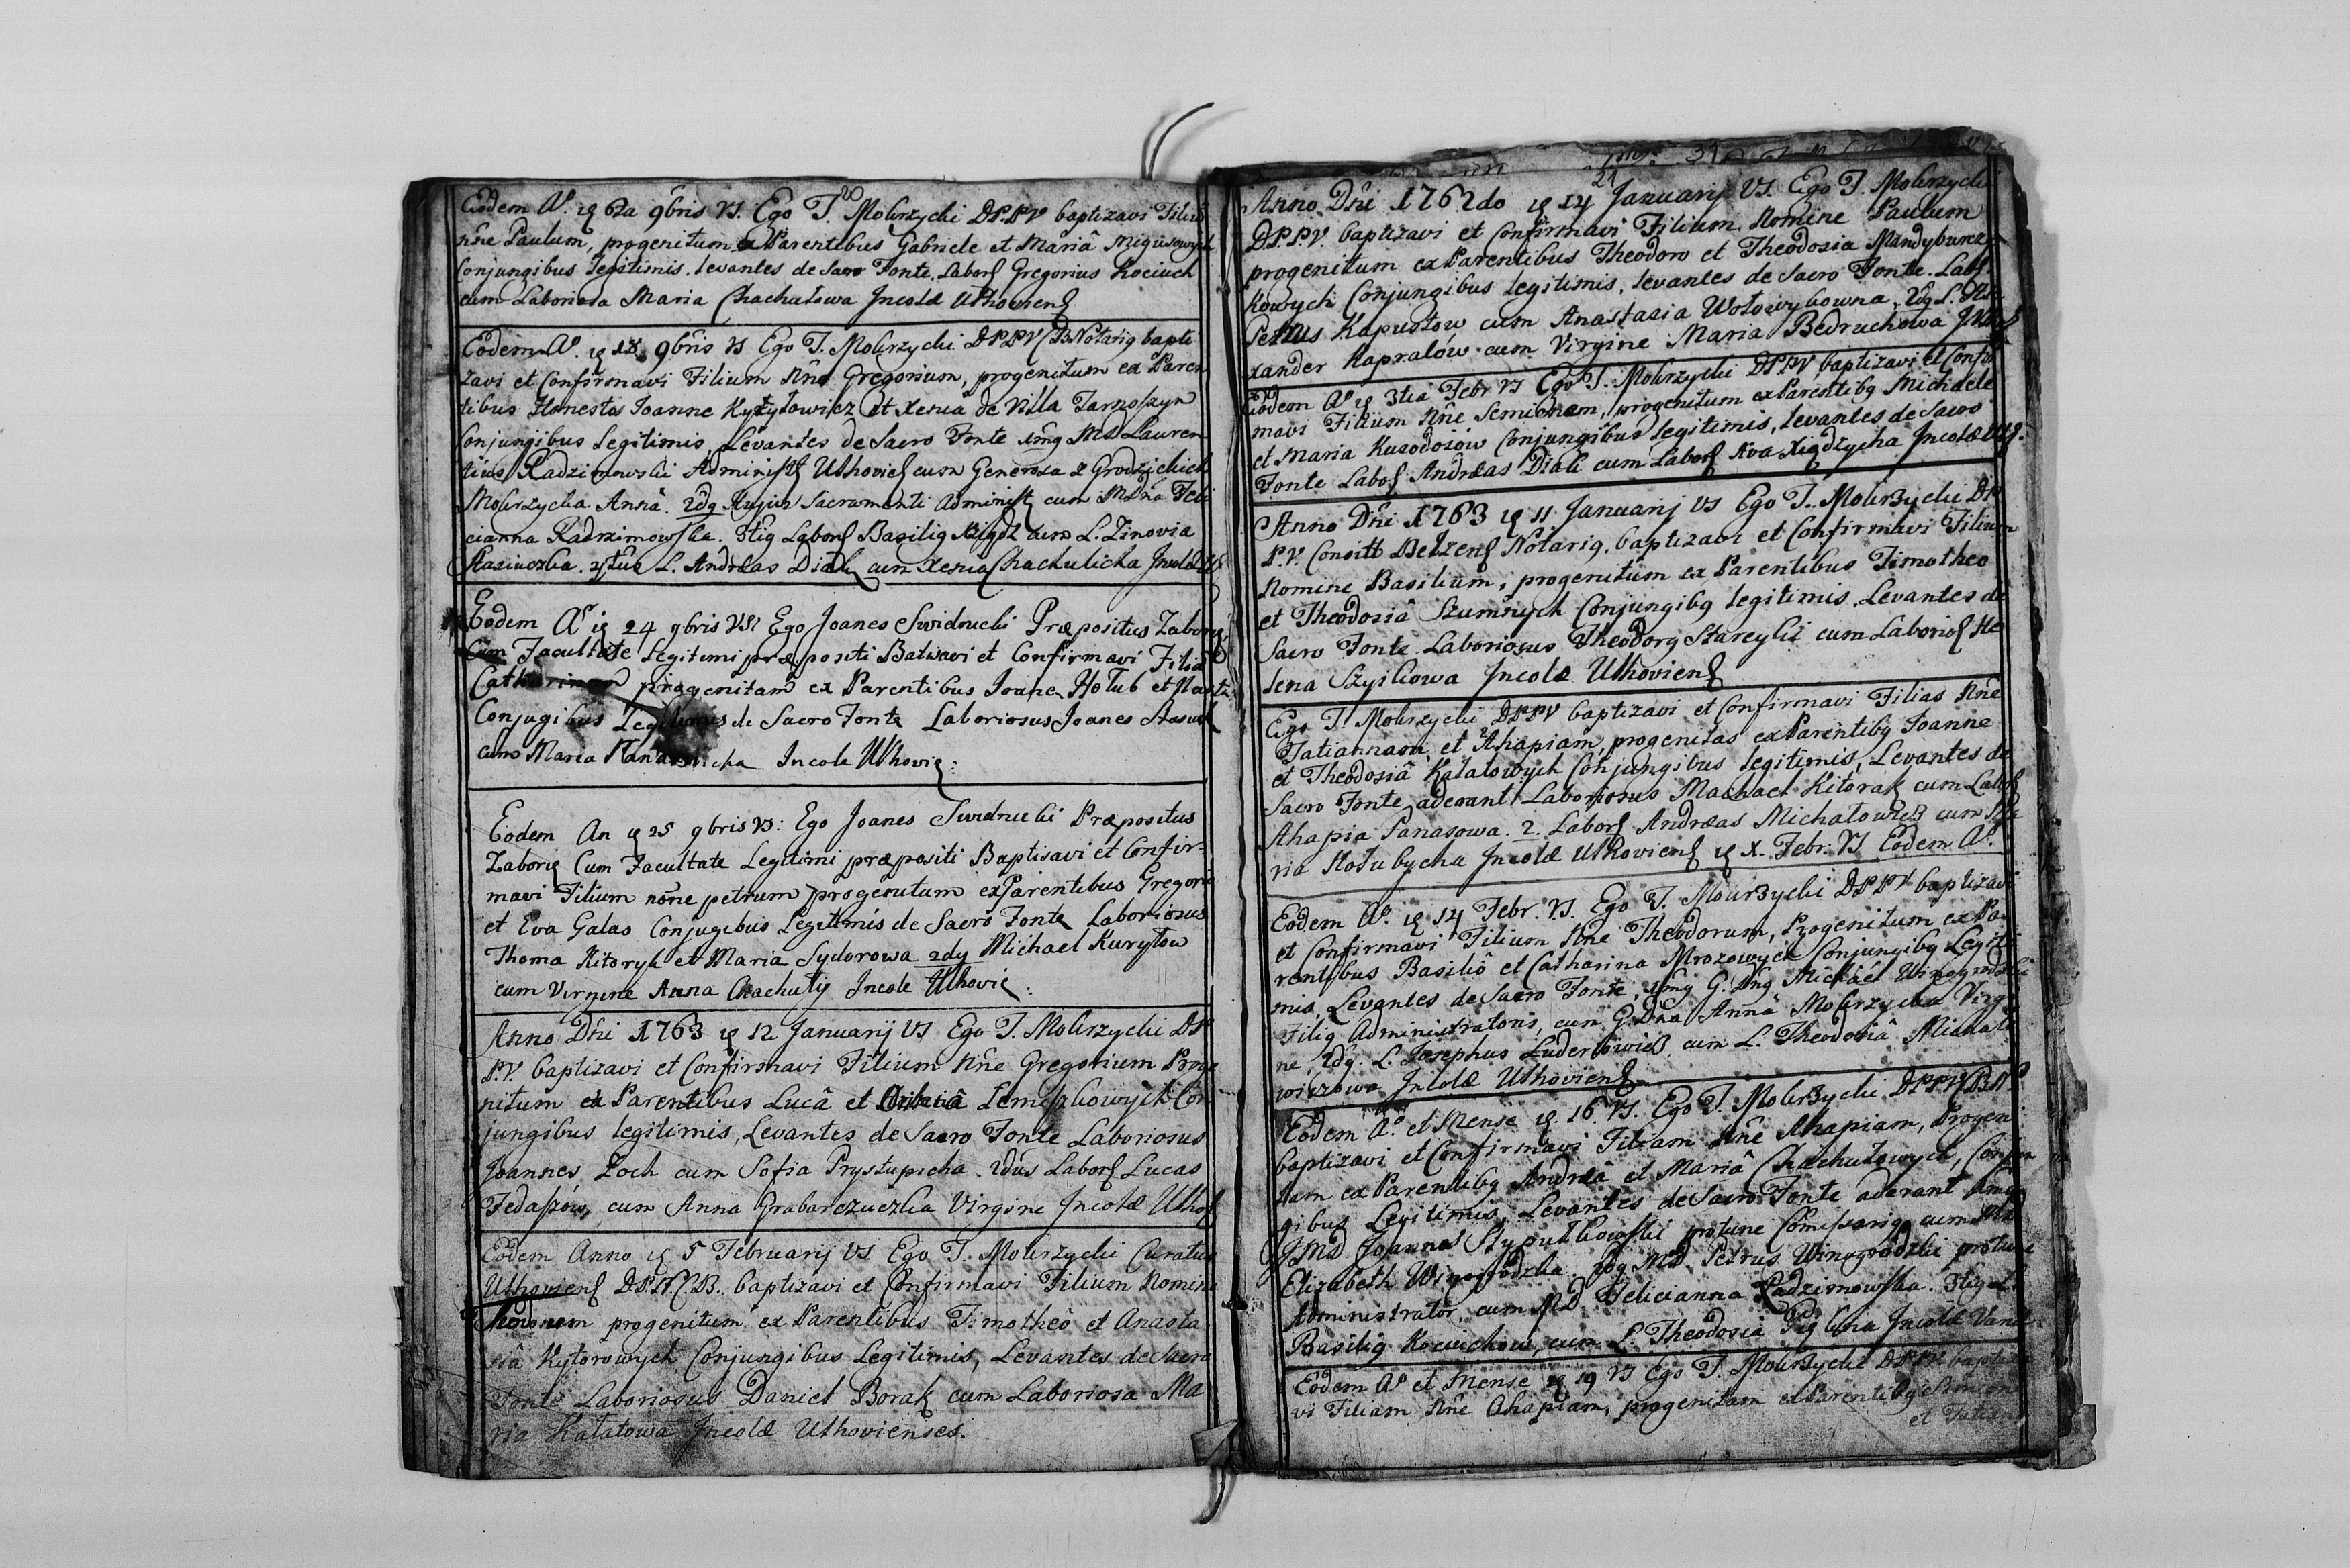 Eodem Aº. ię 6ta 9bris VS. Ego T. Mokrzycki D.P.P.V baptizavi Filiũ
nñe Paulum, progenitum ex Parentibus Gabriele et Mariâ
Conjungibus legitimis. levantes de Sacro Fonte. Labors Gregorius Kociuch
cum Laboriosa Maria Chachułowa Incolæ Uhoviens
Eodem Aº. ię 18. 9bris VS Ego T. Mokrzycki D.P.P.V C.B. Notarig bapti
zavi et Confirmavi Filium Nñe Gregorium, progenitum ex Paren
tibus Honestos Joanne Kyryłowicz et Xenia de Villa Tarnoszyn
Conjungibus legitimis, Levantes de Sacro Fonte 1mg MD Lauren
tius Radzimowski Administ Uhovies cum Generosa z Grodzickich
Mokrzycka Annâ. 2dg Hujus Sacramenti Administ cum MDña Feli
cianna Radzimowska. 3tig Labors Basilig Xiądz cum L. Zinovia
Staziuczka. 4tus L. Andreas Diak cum Xenia Chachulicha Incolæ
Eodem Aº ię 24 9bris VS: Ego Joanes Swidnicki Præpositus Zaborię
Cum Facultate Legitimi præpositi Batisavi et Confirmavi Filiã
Catharinam progenitam ex Parentibus Ioane Hołub et
Conjugibus Legitimis de Sacro Fonte Laboriosus Joanes Stasiuk
cum Maria Incole Uhovie:
Eodem An ię 25 9bris VS: Ego Joanes Swidnicki Præpositus
Zaborię Cum Facultate Legitimi præpositi Baptisavi et Confir-
mavi Filium nõne petrum progenitum ex Parentibus Gregorio
et Eva Galas Conjugibus Legitimis de Sacro Fonte Laboriosus
Thoma Kitoryk et Maria Sydorowa 2dy Michael Kuryłow
cum Virgine Anna Chachuły Incole Uhovie:
Anno Dñi 1763 ię 12 Januarij VS Ego T. Mokrzycki D.P
P.V. baptizavi et Confirmavi Filium Nñe Gregorium Proge
nitum ex Parentibus Lucâ et Lemiszkowych Con
jungibus legitimis, Levantes de Sacro Fonte Laboriosus
Joannes Zoch cum Sofia Prystupicha. 2dus Labors Lucas
Fedaszów, cum Anna Grabarczuczka Virgine Incolæ Uhos
Eodem Anno ię 5 Februarij VS Ego T. Mokrzycki Curatus
Uhoviens D.P.N.C.B. baptizavi et Confirmavi Filium Nomine
progenitum ex Parentibus Timotheô et Anasta
siâ Kytorowych Conjungibus Legitimis, Levantes de Sacro
Fonte Laboriosus Daniel Borak cum Laboriosa Ma
ria Kałatowa Incolæ Uhovienses.
21
Anno Dñi 1762do ię 14 Januarij VS. Ego T. Mokrzycki
D.P.P.V. baptizavi et Confirmavi Filium Nomine Paulum
progenitum ex Parentibus Theodoro et Theodosia Mandyburcza
kowych Conjungibus legitimis, levantes de Sacro Fonte. Labs
Petrus Kapustow cum Anastasia Wołowykowna, 2dg L. Ale
xander Kapralów cum Virgine Maria Bedruchowa
Eodem Aº ię 3tia Febr VS Ego T. Mokrzycki D.P.P.V baptizavi et Confir
mavi Filium Nñe Semionem, progenitum ex Parentibg Michaele
et Maria Conjungibus legitimis, levantes de Sacro
Fonte Labos Andreas Diak cum Labors Ava Xiądzycha Incolæ
Anno Dñi 1763 ię 11 Januarij VS Ego T. Mokrzycki D.P
P.V. Belzens Notarig, baptizavi et Confirmavi Filium
Nomine Basilium, progenitum ex Parentibus Timotheo
et Theodosiâ Szumnych Conjungibg legitimis. Levantes de
Sacro Fonte Laboriosus Theodorg Stareyki cum Laborios He
lena Szyikowa Incolæ Uhoviens
Ego T. Mokrzycki D.P.P.V baptizavi et Confirmavi Filias Nñe
Tatiannam et 2 Ahapiam, progenitas ex Parentibg Joanne
et Theodosiâ Kałatowych Conjungibus legitimis, Levantes de
Sacro Fonte aderant Laboriosus Machael Kitorak cum Labos
Ahapia Panasowa. 2. Labors Andreas Michałowicz cum Ma
ria Hołubycha Incolæ Uhoviens ię X. Febr. VS Eodem Aº.
Eodem Aº. ię 14 Febr. VS. Ego T. Mokrzycki D.P.P.V baptizavi
et Confirmavi Filium Nñe Theodorum, Progenitum ex Pa
rentibus Basiliô et Catharina Mrozowych Conjungibg Legiti
mis, Levantes de Sacro Fonte, 1mg G. Dng Michael Winogrodzki
Filig Administratoris, cum G. Dña Annâ Mokrzycka Virgi
ne, 2dg. L. Josephus Luderkiewicz cum L. Theodosiâ Michało
wiczowa Incolæ Uhoviens
Eodem Aº. et Mense ię. 16. VS. Ego T. Mokrzycki D.P.P.V
baptizavi et Confirmavi Filiam Nñe Ahapiam, Progeni
tam ex Parentibg Andreâ et Mariâ Chachułowych, Conjun
gibus Legitimis, Levantes de Sacro Fonte aderant 1mg
JMD Joannes Stypułkowski protunc Comissarig cum MD
Elizabeth Winogrodzka. 2dg MD. Petrus Winogrodzki protunc
Administrator, cum MD Felicianna Radzimowska. 3tig L
Basilig Kociuchow, cum L. Theodosia Incolæ
Eodem Aº et Mense ię 19 VS Ego T. Mokrzycki D.P.P.V. baptiza
vi Filiam Nñe Ahapiam, progenitam ex Parentibg Simeone
et Tatiana